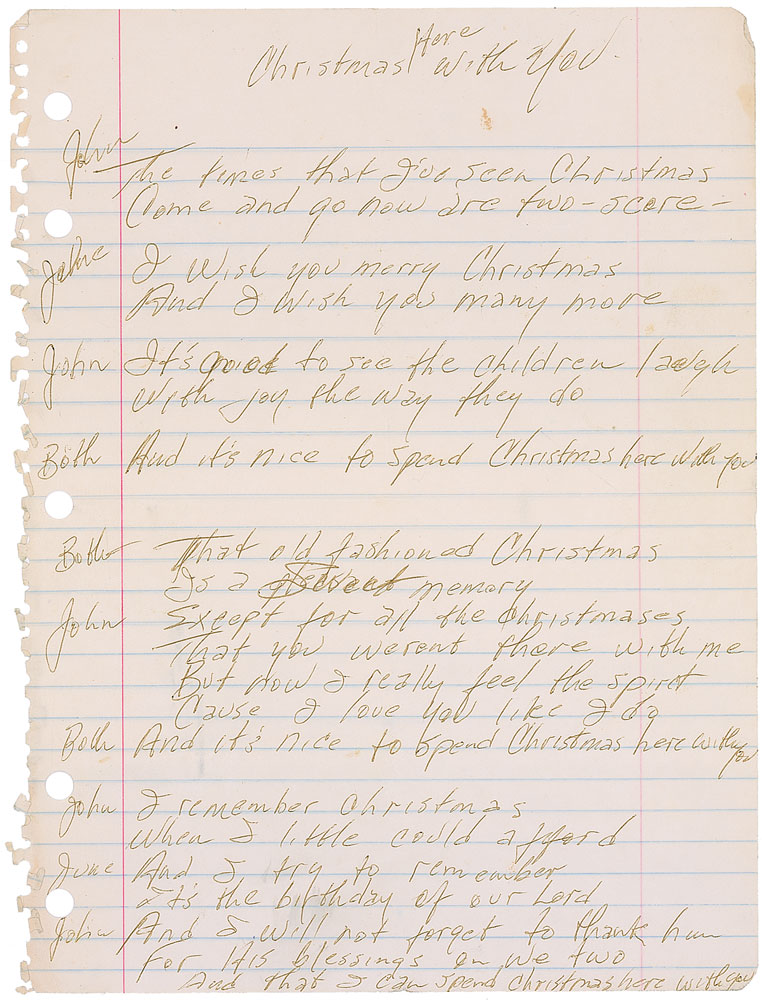 Christmas Here With You
John
The times that I've seen Christmas
Come and go now are two-score-
June I wish you merry Christmas
And I wish you many more
John It's good to see the children laugh
With joy the way they do
Both And it's nice to spend Christmas here with you
Both That old fashioned Christmas
Is a sweet memory
John Except for all the Christmases
That you werent there with me
But now I really feel the spirit
Cause I love you like I do
Both And it's nice to spend Christmas here with you
John I remember Christmas
When I little could afford
June And I try to remember
It's the birthday of our Lord
John And I will not forget to thank him
For His blessings on we two
And that I can spend Christmas here with you